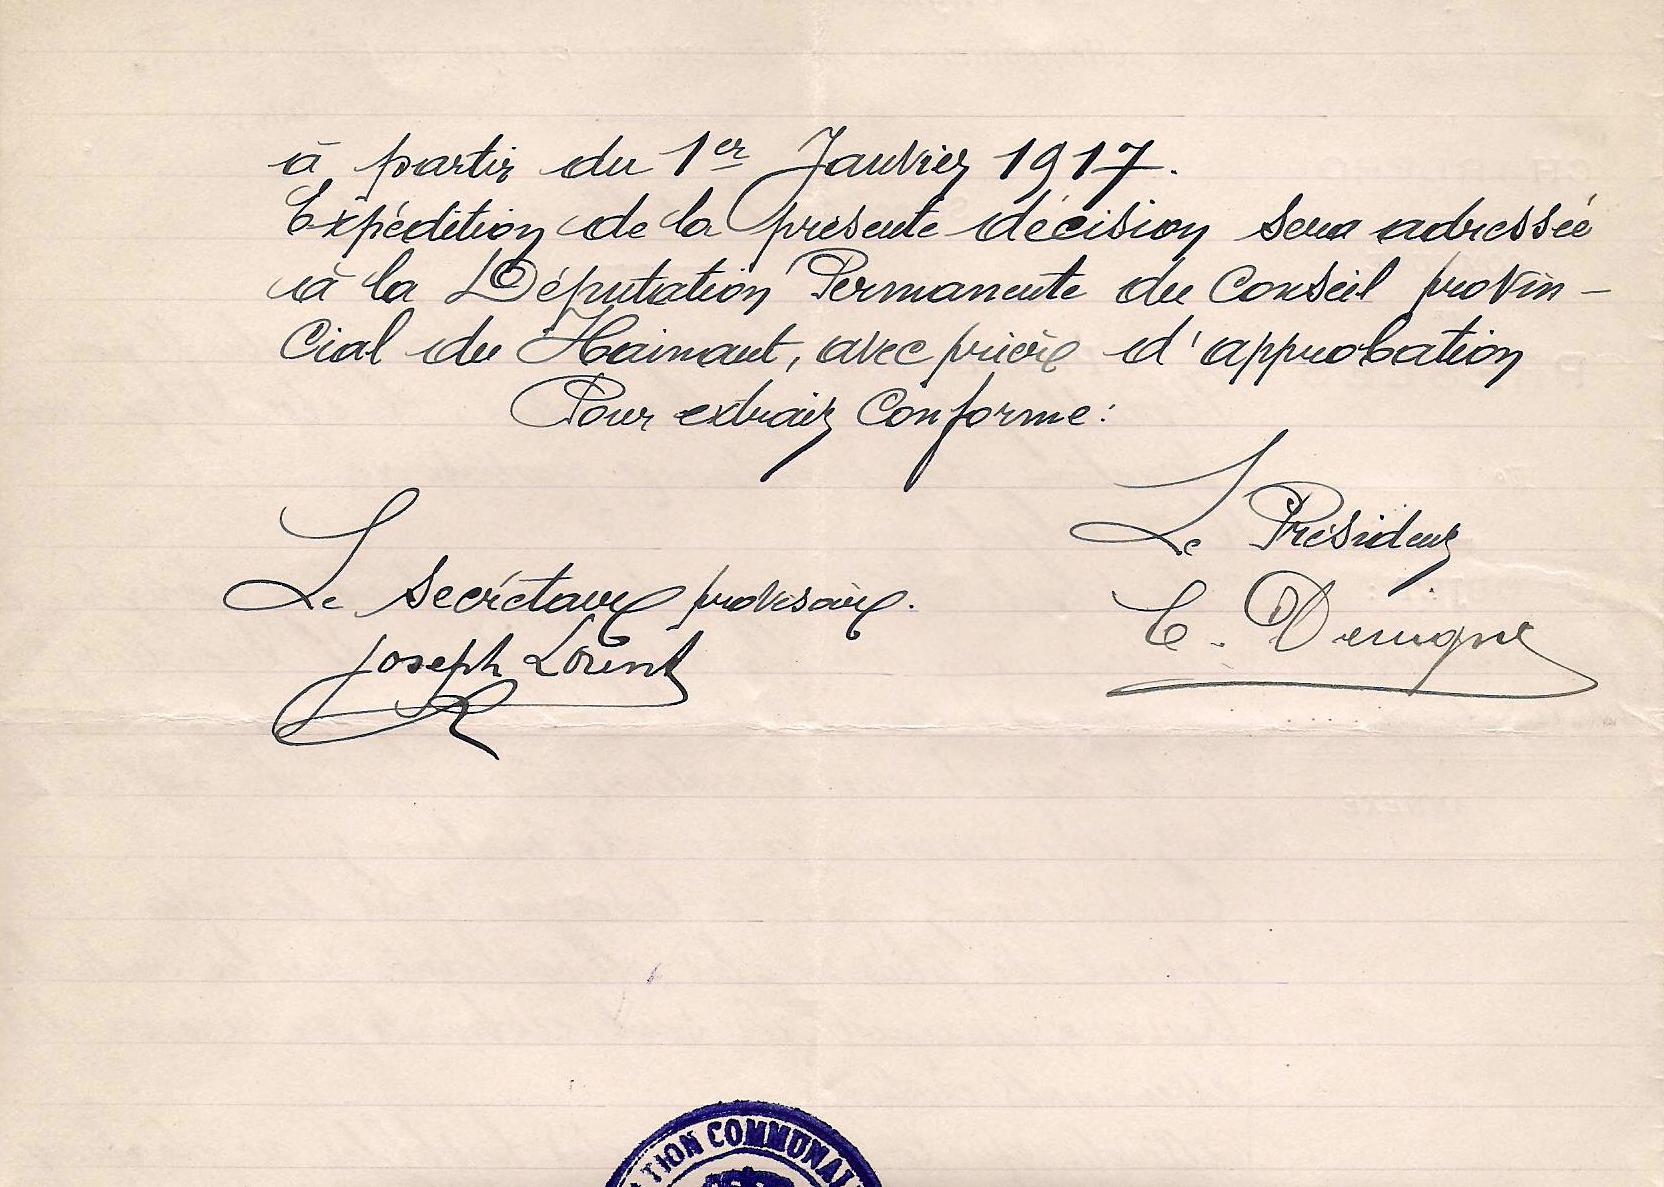 à partir du 1er Janvier 1917.
Expédition de la présente décision sera adressée
à la Députation Permanente du Conseil provin-
cial du Hainaut, avec prière d'approbation
Pour extrait conforme:
Le Président
Le secrétaire provisoire.
Joseph Lorent
TION COMMUNAL